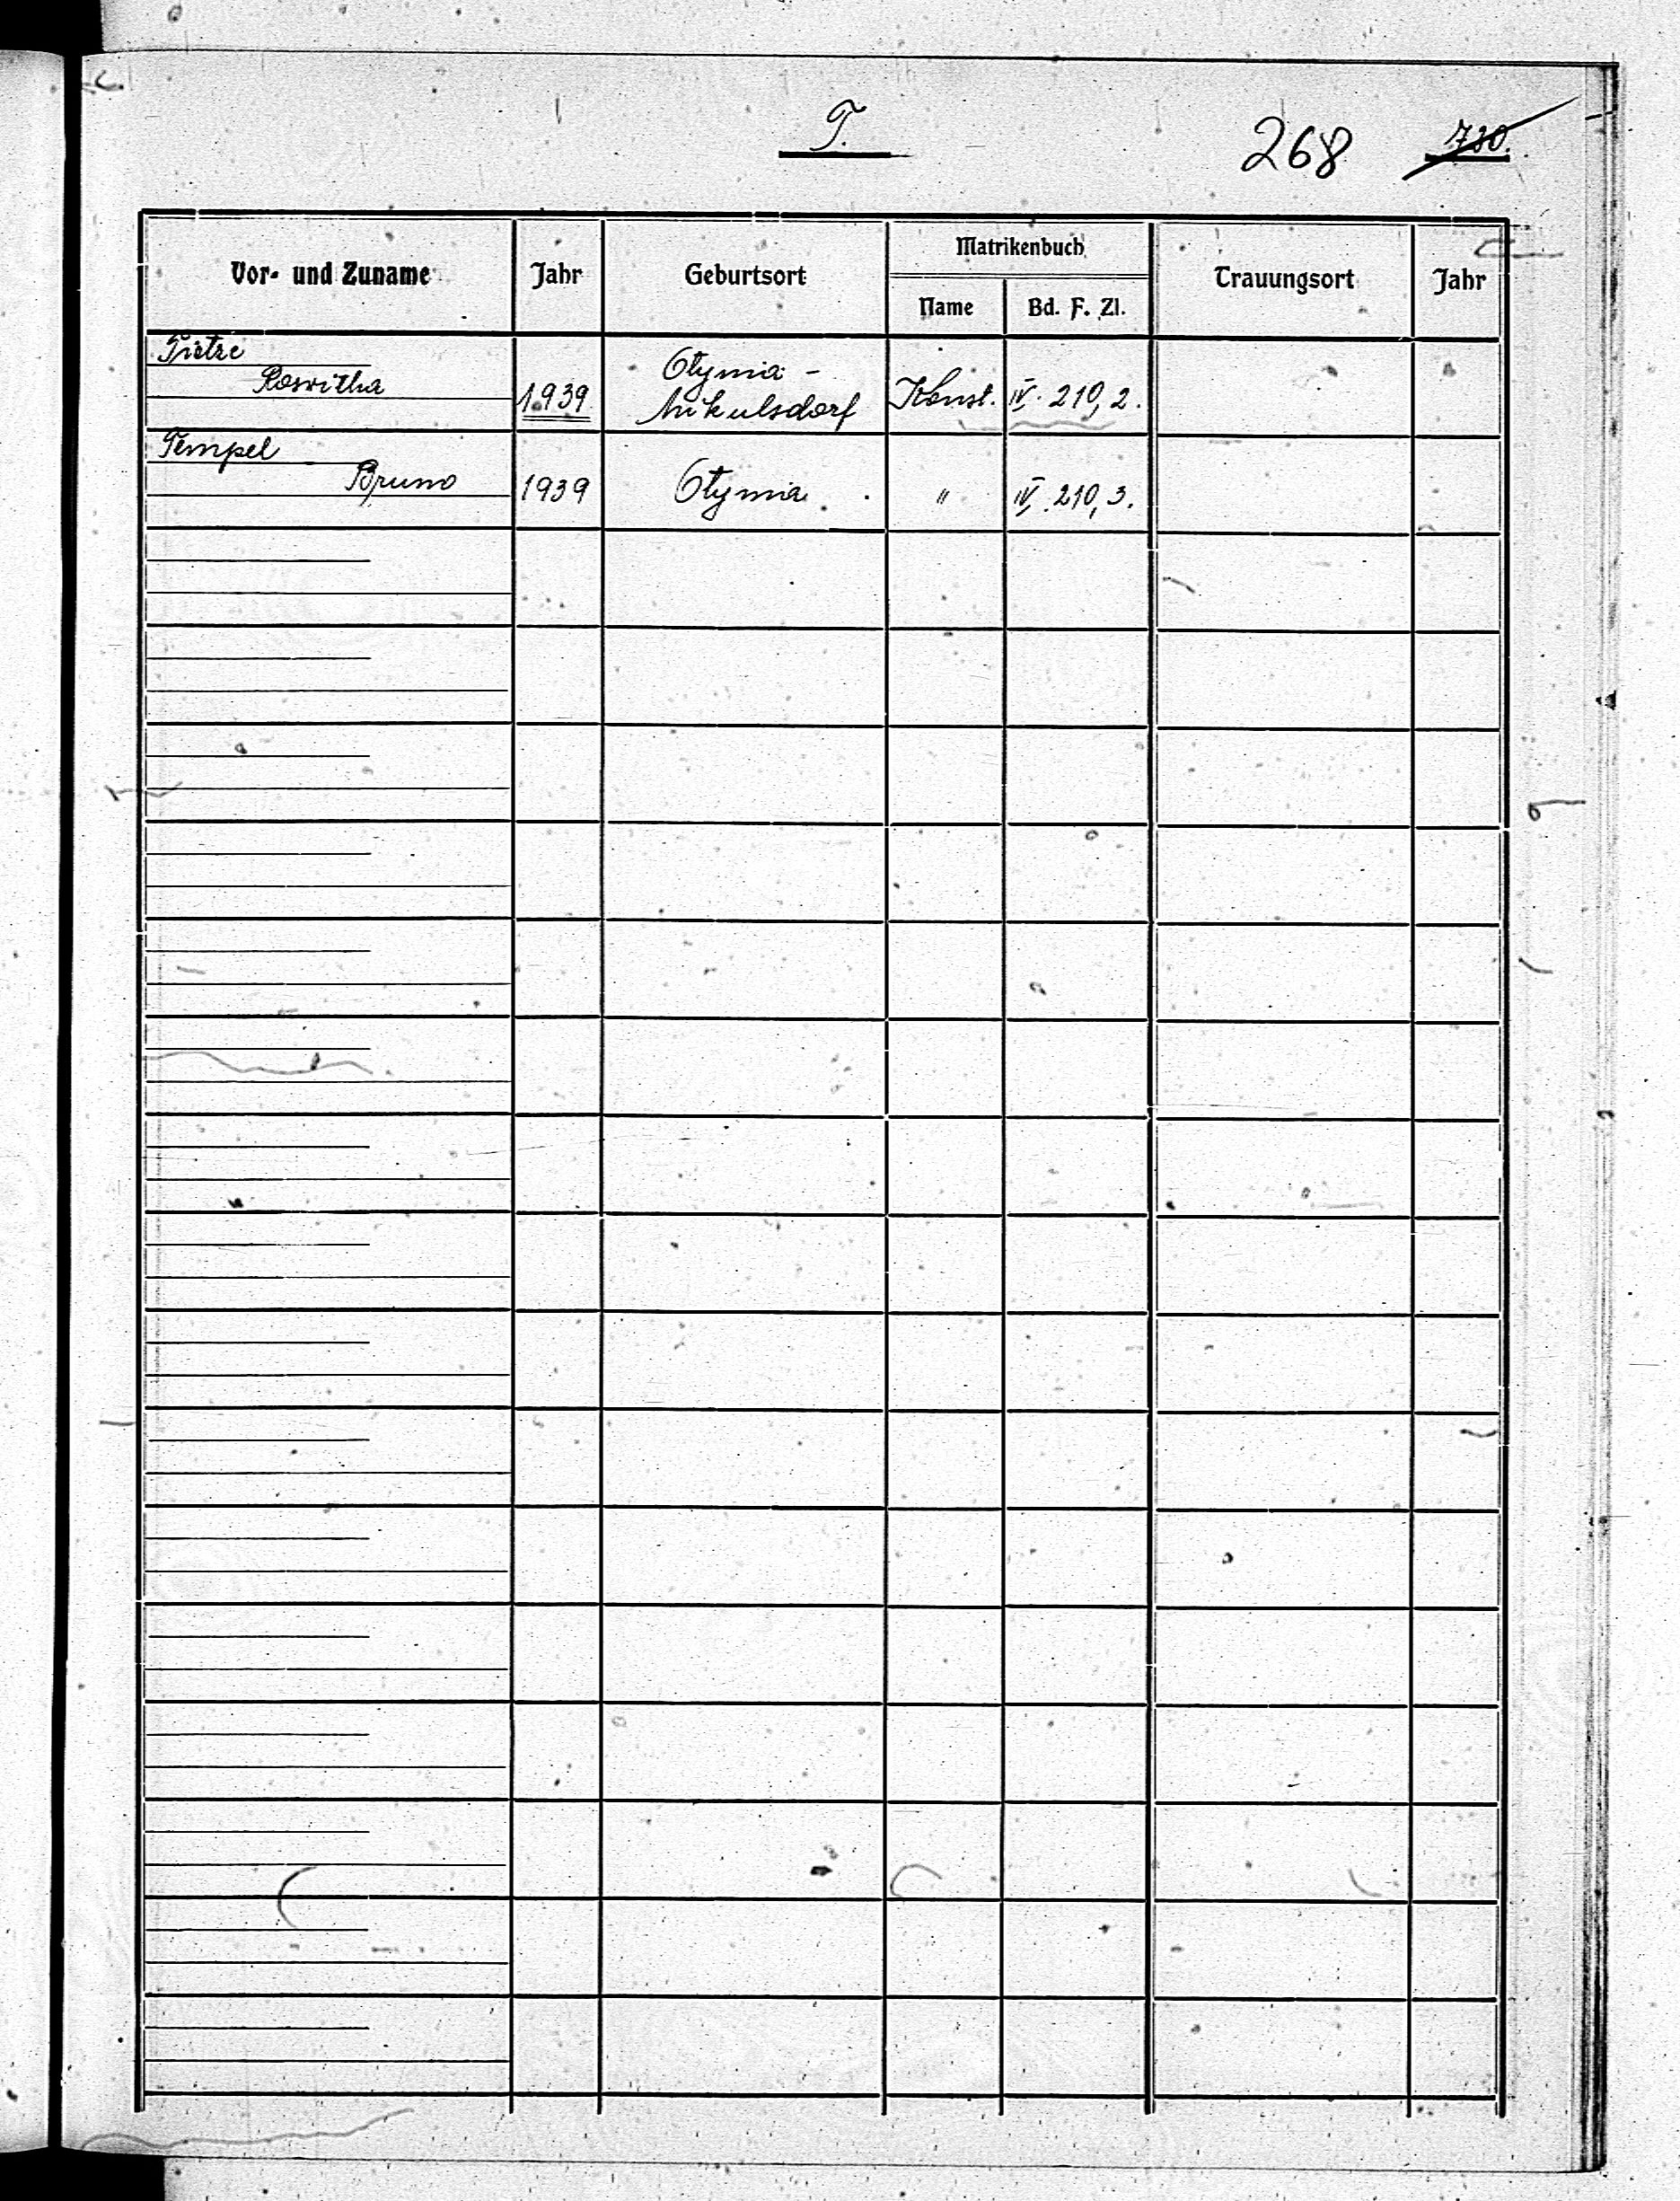 T.
268 730.
Vor- und Zuname Jahr Geburtsort Matrikenbuch Trauungsort Jahr
Name Bd. F. Zl.
Tietze
Roswitha 1939 Otynia - Mikulsdorf Konst. IV. 210, 2.
Tempel
Bruno 1939 Otynia. " IV. 210, 3.